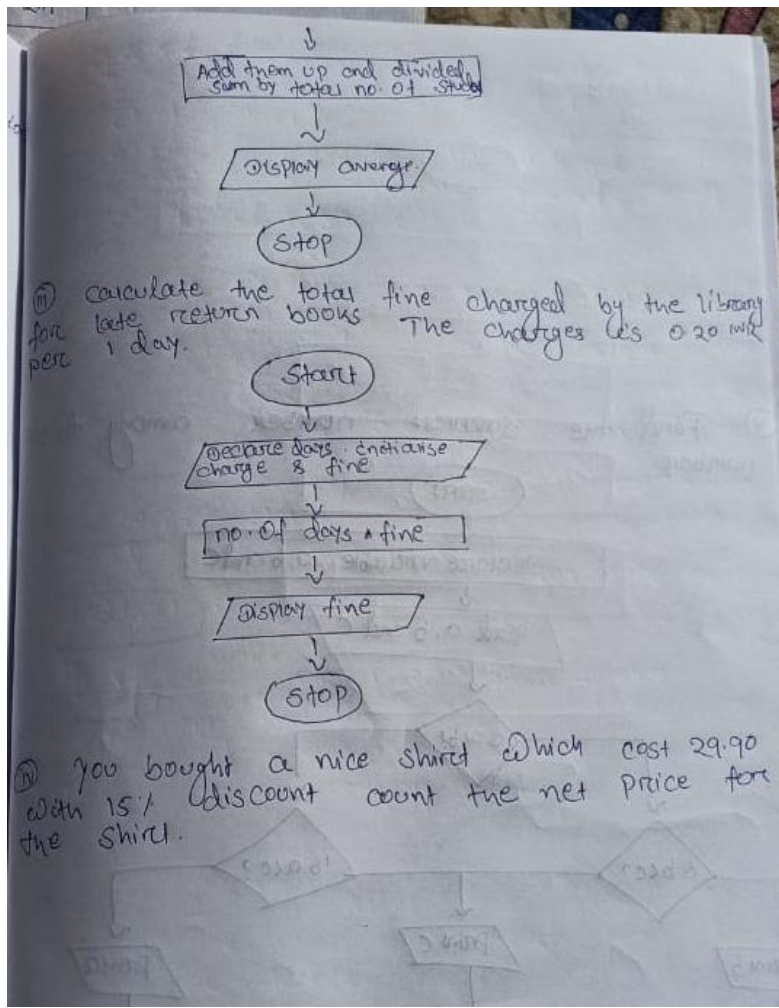 Add them up and divided
sum by total no. of stude
Display averge.
Stop
(iii) calculate the total fine charged by the library
for late return books The charges is 0.20 INR
per 1 day.
Start
Declare days. initialise
charge & fine
no. of days * fine
Display fine
Stop
(iv) you bought a nice shirt which cost 29.90
with 15% discount count the net price for
the shirt.